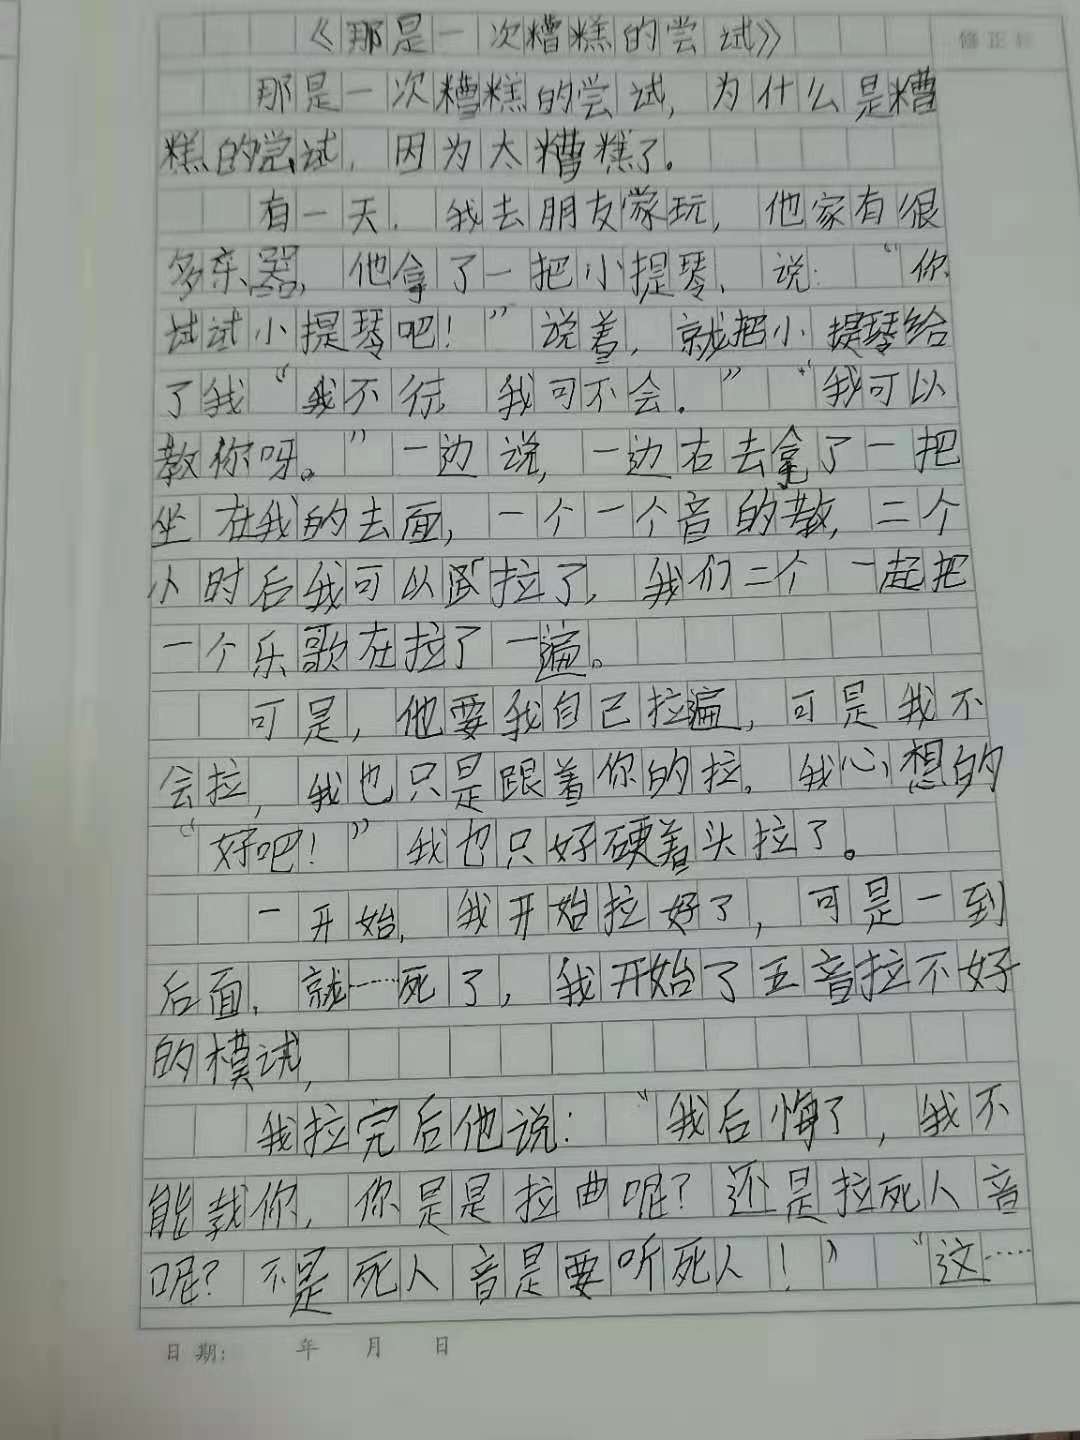 《那是一次糟糕的尝试》
修正栏
那是一次糟糕的尝试，为什么是糟
糕的尝试，因为太糟糕了。
有一天，我去朋友家玩，他家有很
多乐器，他拿了一把小提琴，说：“你
试试小提琴吧！”说着，就把小提琴给
了我“我不行，我可不会。”“我可以
教你呀。”一边说，一边右去拿了一把
坐在我的去面，一个一个音的教，二个
小时后我可以跟拉了，我们二个一起把
一个乐歌在拉了一遍。
可是，他要我自己拉遍，可是我不
会拉，我也只是跟着你的拉。我心想的
“好吧！”我也只好硬着头拉了。
一开始，我开始拉好了，可是一到
后面，就……死了，我开始了五音拉不好
的模试，
我拉完后他说：“我后悔了，我不
能教你，你是是拉曲呢？还是拉死人音
呢？不是死人音是要听死人！”“这……
日期：年 月 日